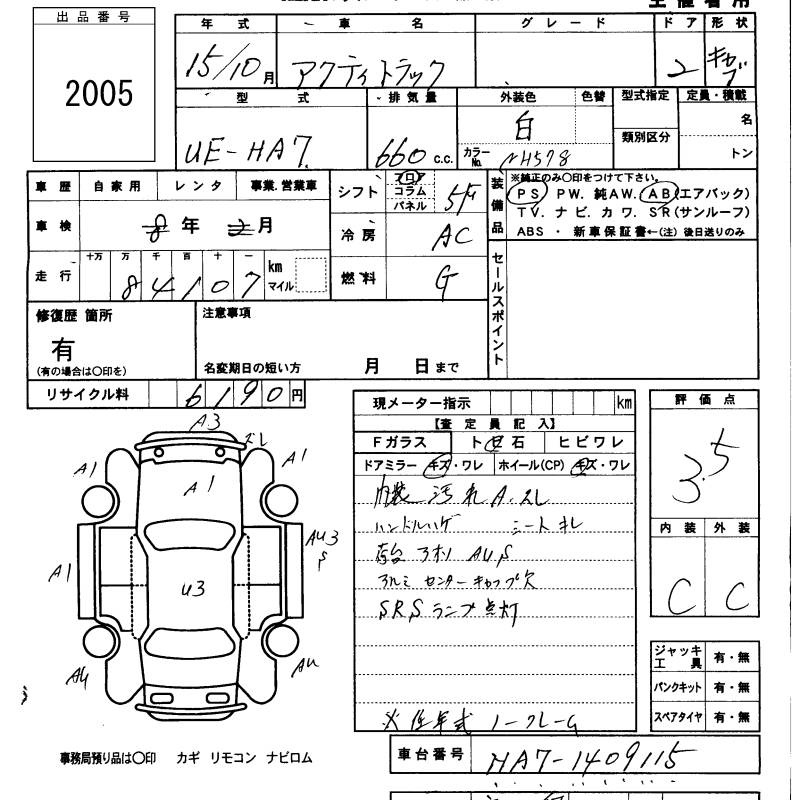 出品番号
2005
年式 車名 グレード ドア 形状
15/10月 アクティトラック 2 キャブ
型式 排気量 外装色 色替 型式指定 定員・積載
UE-HA7 660 c.c. 白 カラーNo. NH578 類別区分 名
トン
車歴 自家用 レンタ 事業.営業車
シフト フロ コラム パネル 5F
装備品 ※純正のみ〇印をつけて下さい。
PS PW. 純AW. AB(エアバック)
TV. ナビ. カワ. SR(サンルーフ)
ABS ・ 新車保証書←(注) 後日送りのみ
車検 8年 2月
冷房 AC
走行 十万 万 千 百 十 一
84107 km マイル
燃料 G
セールスポイント
修復歴 箇所
有
(有の場合は〇印を)
注意事項
名変期日の短い方 月 日まで
リサイクル料 6190円
現メーター指示 km
【査定員記入】
Fガラス トビ石 ヒビワレ
ドアミラー キズ・ワレ ホイール(CP) キズ・ワレ
内装 汚れ A.スレ
ハンドルハゲ シートキレ
荷台 アオリ AUS
アルミ センターキャップ欠
SRSランプ点灯
評価点
3.5
内装 外装
C C
A3
スレ
A1 A1 A1
A1 U3 AU3
S
AU AU
ジャッキ工具 有・無
パンクキット 有・無
スペアタイヤ 有・無
※低年式 ノークレーム
事務局預り品は〇印 カギ リモコン ナビロム
車台番号 HA7-1409115